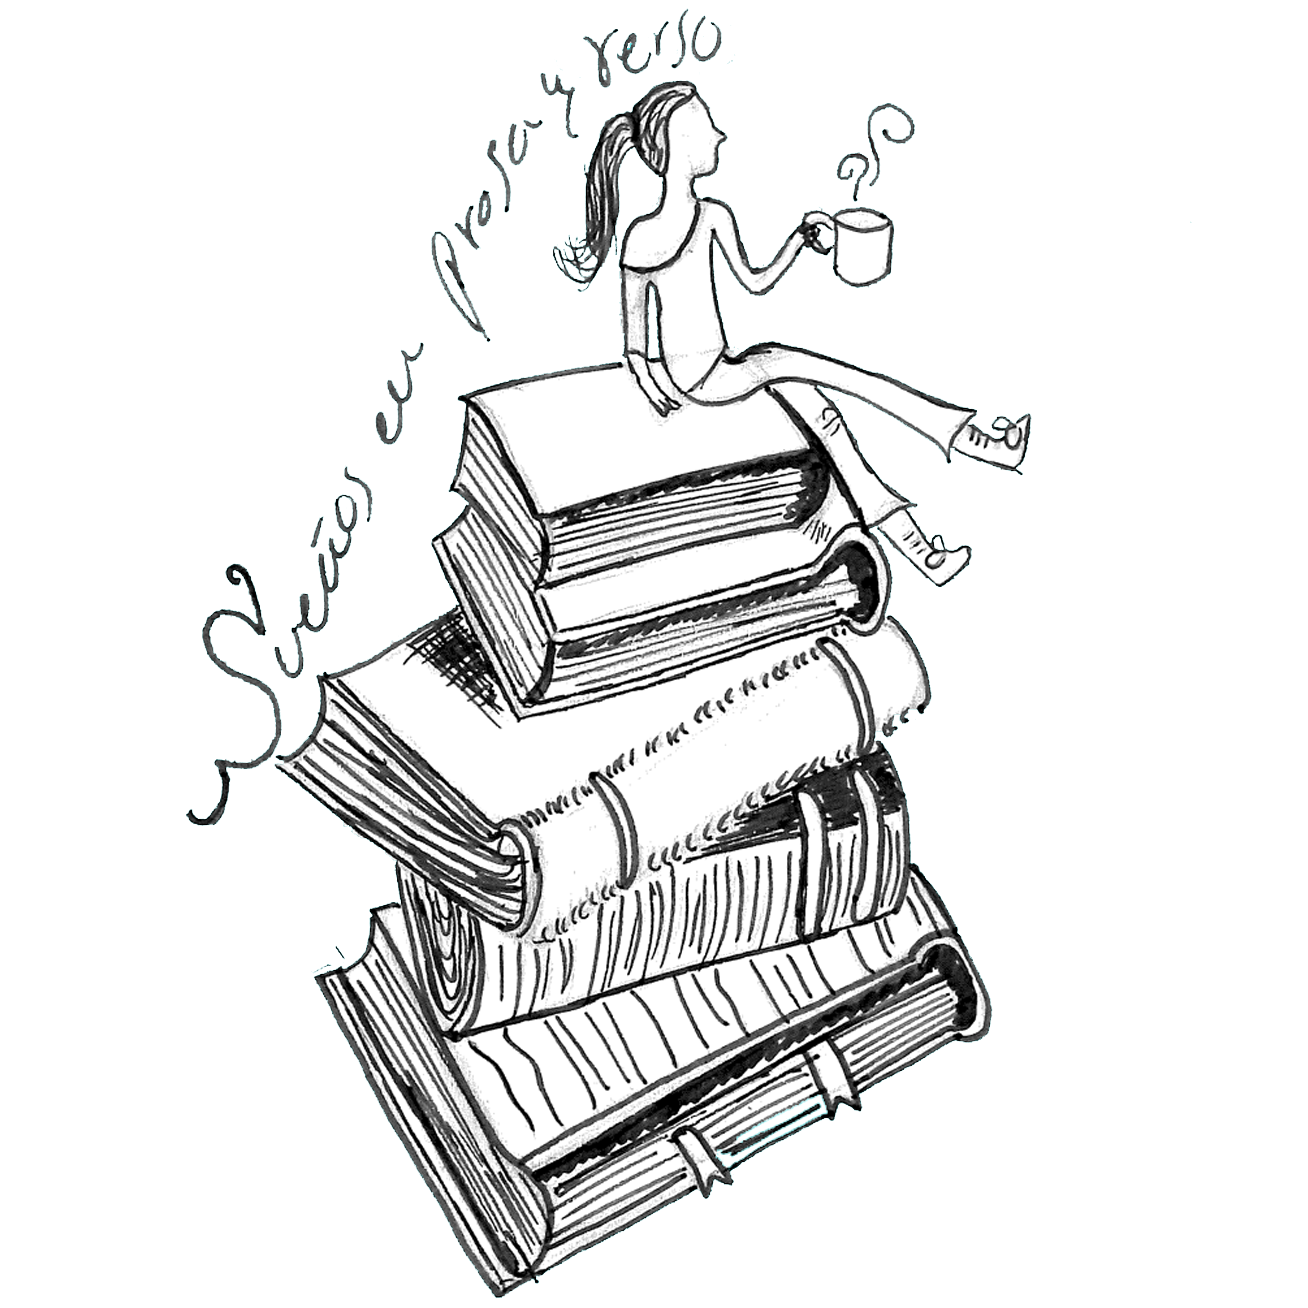 Sueños en prosa y verso